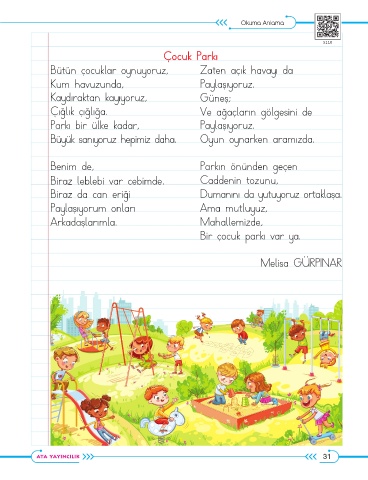 Okuma Anlama
Çocuk Parkı
Bütün çocuklar oynuyoruz,
Kum havuzunda,
Kaydıraktan kayıyoruz,
Çığlık çığlığa.
Parkı bir ülke kadar,
Büyük sanıyoruz hepimiz daha.
Benim de,
Biraz leblebi var cebimde.
Biraz da can eriği
Paylaşıyorum onları
Arkadaşlarımla.
Zaten açık havayı da
Paylaşıyoruz.
Güneş;
Ve ağaçların gölgesini de
Paylaşıyoruz,
Oyun oynarken aramızda.
Parkın önünden geçen
Caddenin tozunu,
Dumanını da yutuyoruz ortaklaşa.
Ama mutluyuz,
Mahallemizde,
Bir çocuk parkı var ya.
Melisa GÜRPINAR
ATA YAYINCILIK
31